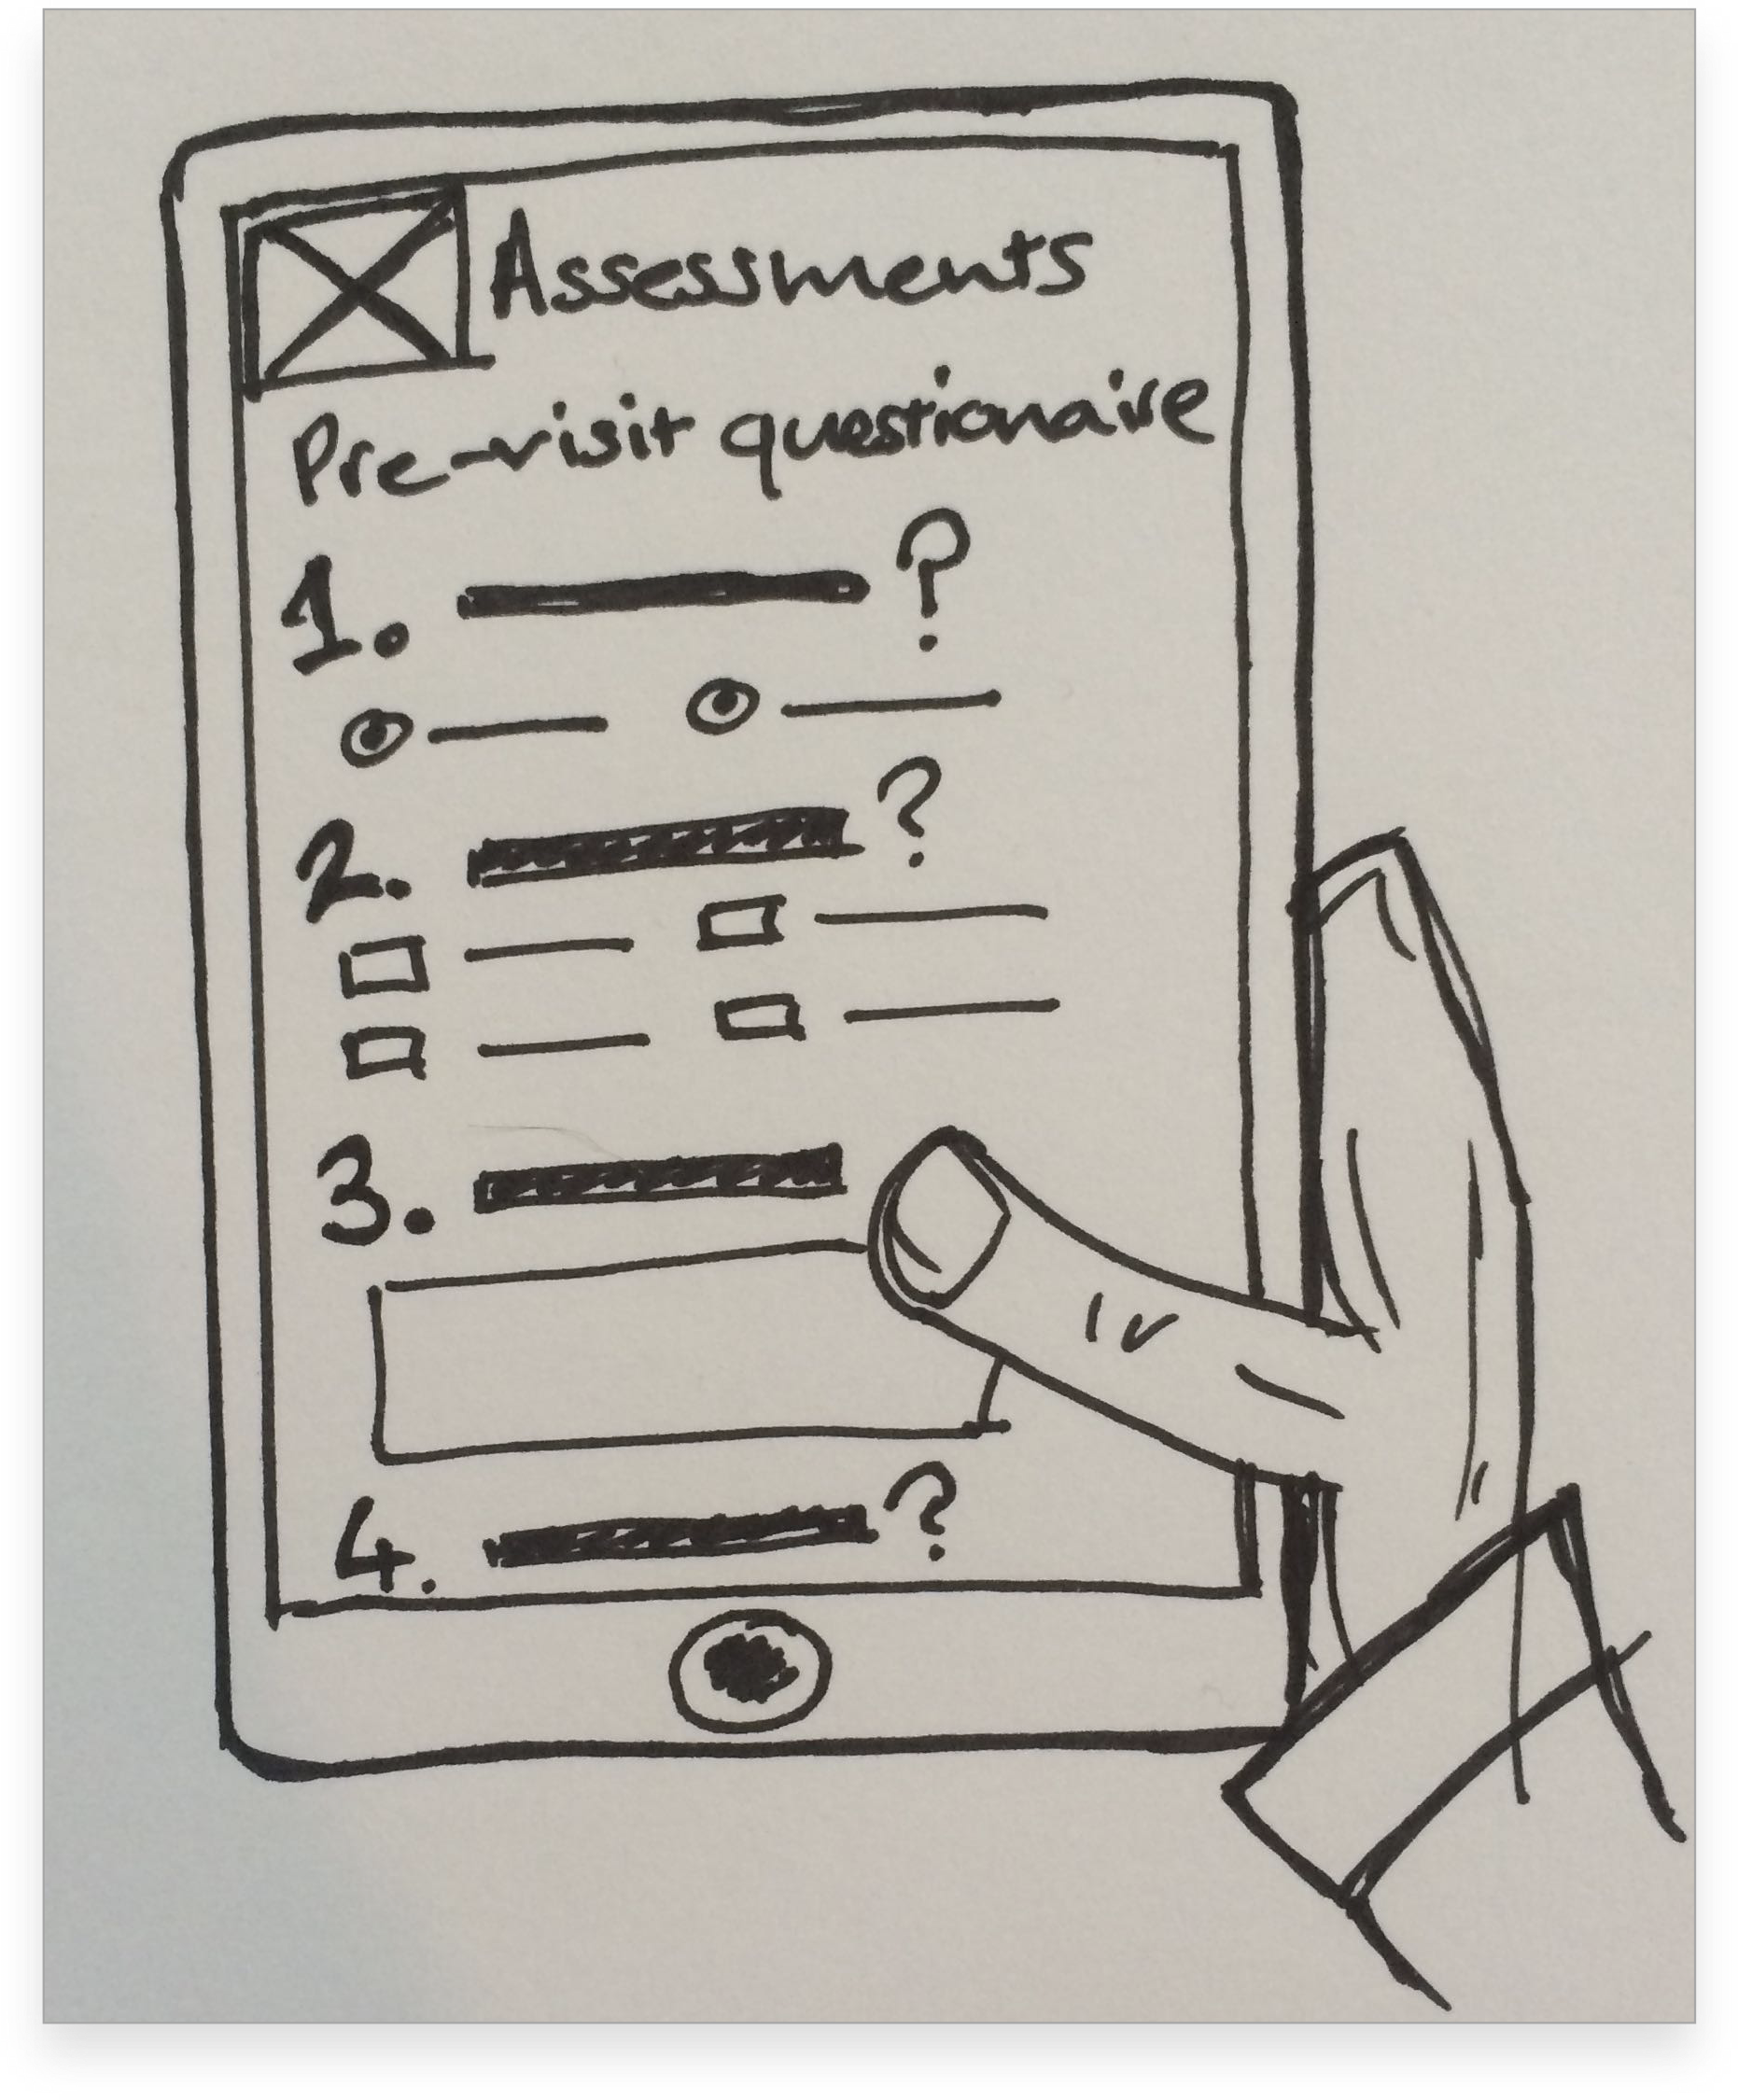 Assessments
Pre-visit questionaire
1. ?
2. ?
3.
4. ?